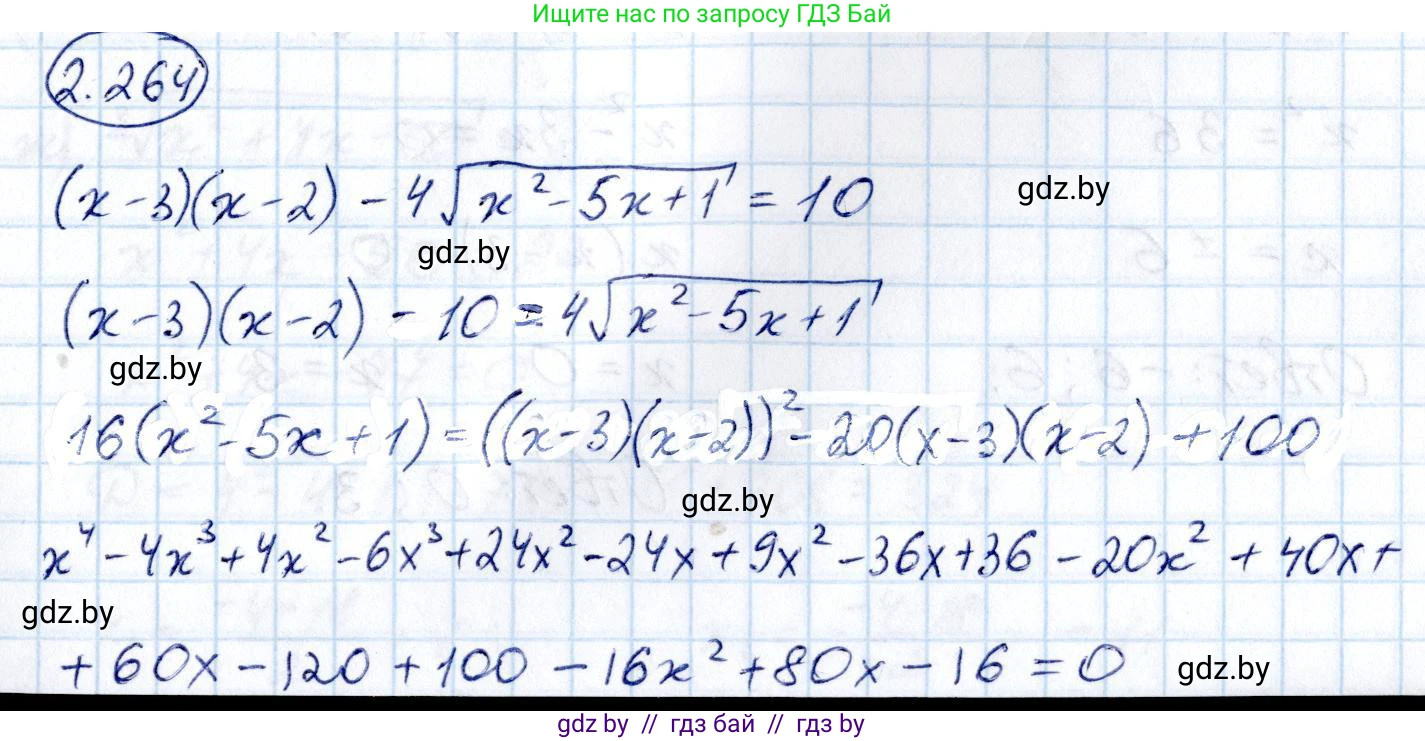 Ищите нас по запросу ГДЗ Бай
2.264
(x-3)(x-2) - 4√(x²-5x+1) = 10
gdz.by
gdz.by
(x-3)(x-2) - 10 = 4√(x²-5x+1)
gdz.by
16(x²-5x+1) = ((x-3)(x-2))² - 20(x-3)(x-2) + 100
gdz.by
x⁴ - 4x³ + 4x² - 6x³ + 24x² - 24x + 9x² - 36x + 36 - 20x² + 40x +
gdz.by
+ 60x - 120 + 100 - 16x² + 80x - 16 = 0
gdz.by
gdz by // гдз бай // гдз by